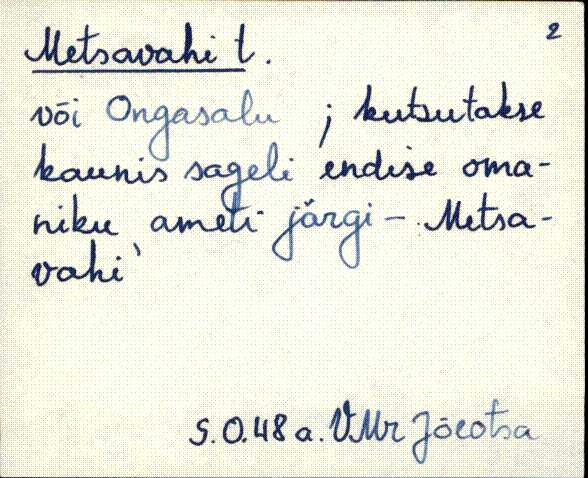 2
Metsavahi t.
või Ongasalu ; kutsutakse
kaunis sageli endise oma-
niku ameti järgi – Metsa-
vahi'
S.O.48 a. VMr Jõeotsa